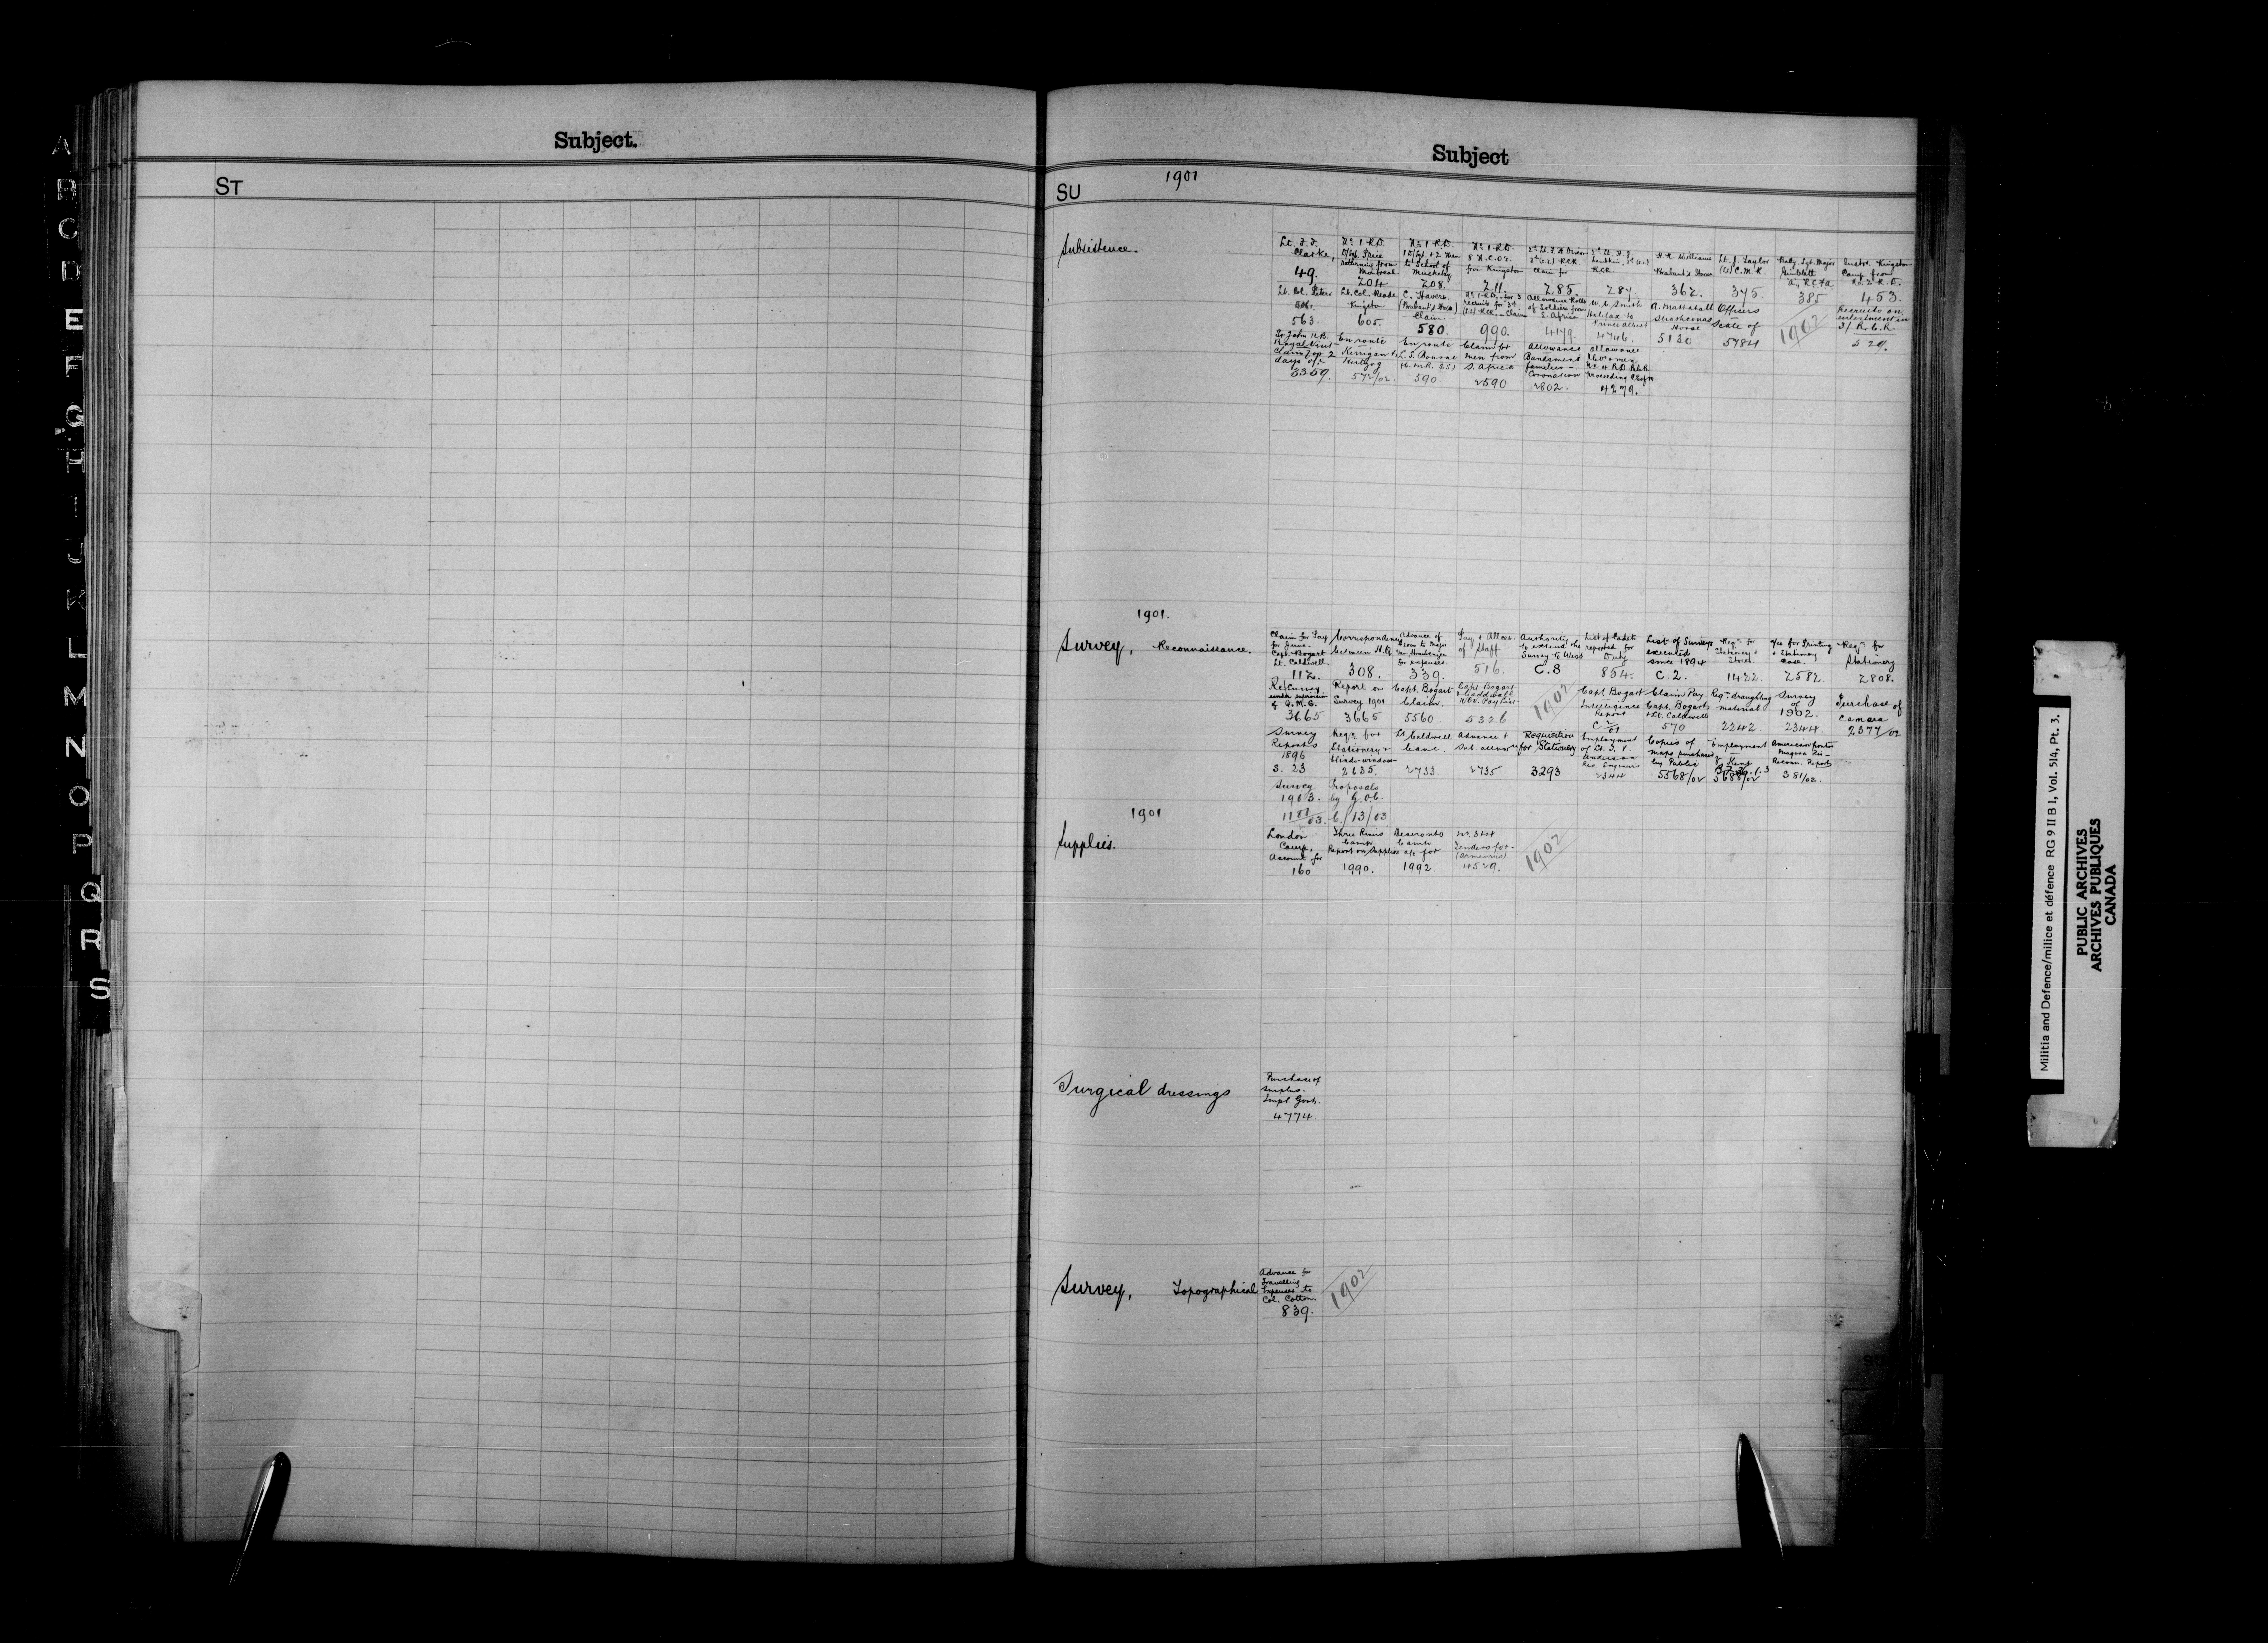 Subject.
ST
A
B
C
D
E
F
G
H
I
J
K
L
M
N
O
P
Q
R
S
Subject
SU 1901
Subsistence.
Lt. J. J. Clarke, 49.
No. 1 R.D. Price returning from Montreal 204
No. 1 R.D. 2 men to School of Musketry 208.
No. 1 R.D. 8 N.C.O's. from Kingston 211.
Claim for 285.
R.C.R. 287
H. R. Williams Brabant's Horse 362.
Lt. J. Taylor C.M.R. 375.
Sgt. Major 385
Kingston Camp from No. 2 R.D. 453.
Lt. Col. Peters 563.
Lt. Col. Reade Kingston 605.
C. Havers (Brabant's Horse) Claim. 580.
No. 1 R.D. for 3 recruits for 3rd R.C.R. Claim 990.
Allowance Rolls of Soldiers from S. Africa 4179.
W. C. Smith Halifax to Prince Albert 4746.
Strathconas Horse 5130
Officers Scale of 5784
1902
Recruits on enlistment in R.C.R. 529.
St. John N.B. Royal Visit 2 days of. 3359.
En route Kerrigan & Hertzog 572/02.
En route 590
Claim for men from S. Africa 2590
Allowance Bandsmen's families Coronation 2802.
allowance 4279.
1901.
Survey, Reconnaissance.
Claim for Pay for June Capt. Bogart Lt. Caldwell 112.
Correspondence between H.Q. 308.
Advance of to Major for expenses. 339.
Pay & Allces. of Staff 516.
Authority to extend the Survey to West C.8
List of Cadets reported for Duty 854.
List of Surveys executed since 1894 C.2.
Reqn. for Stationery 1422.
for Printing & Stationery 2582.
Reqn. for Stationery 2808.
Re Survey under supervision of Q.M.G. 3665
Report on Survey 1901 3665
Capt. Bogart Claim. 5560
Capt. Bogart & Caldwell 5326
1902
Capt Bogart Intelligence Report
Claim Pay. Capt. Bogart & Lt. Caldwell 570
Reqn. draughting material 2242
Survey of 1902. 2344
Purchase of Camara 2377/02
Survey Reports 1896 S. 23
Reqn. for Stationery & blinds-window 2635.
Lt Caldwell leave. 2733
Advance & Sub. allowce 2735
Requisition for Stationery 3293
Employment of Lt. Anderson 2344
Copies of maps purchased by Public 5568/02
Employment of 5688/02
American frontier Niagara Reconn. Reports 381/02.
Survey 1903.
Proposals by G.O.C. C/13/03
1901
Supplies.
London Camp, Account for 160
Three Rivers Camp Report on Supplies 1990.
Deseronto Camp a/c for 1992.
Tenders for (armouries) 4529.
1902
Surgical dressings
Purchase of surplus. Impl. Govt. 4774.
Survey, Topographical
Advance for Travelling Expenses to Col. Cotton. 839.
1902
Militia and Defence/milice et défence RG 9 II B 1, Vol. 514, Pt. 3.
PUBLIC ARCHIVES
ARCHIVES PUBLIQUES
CANADA